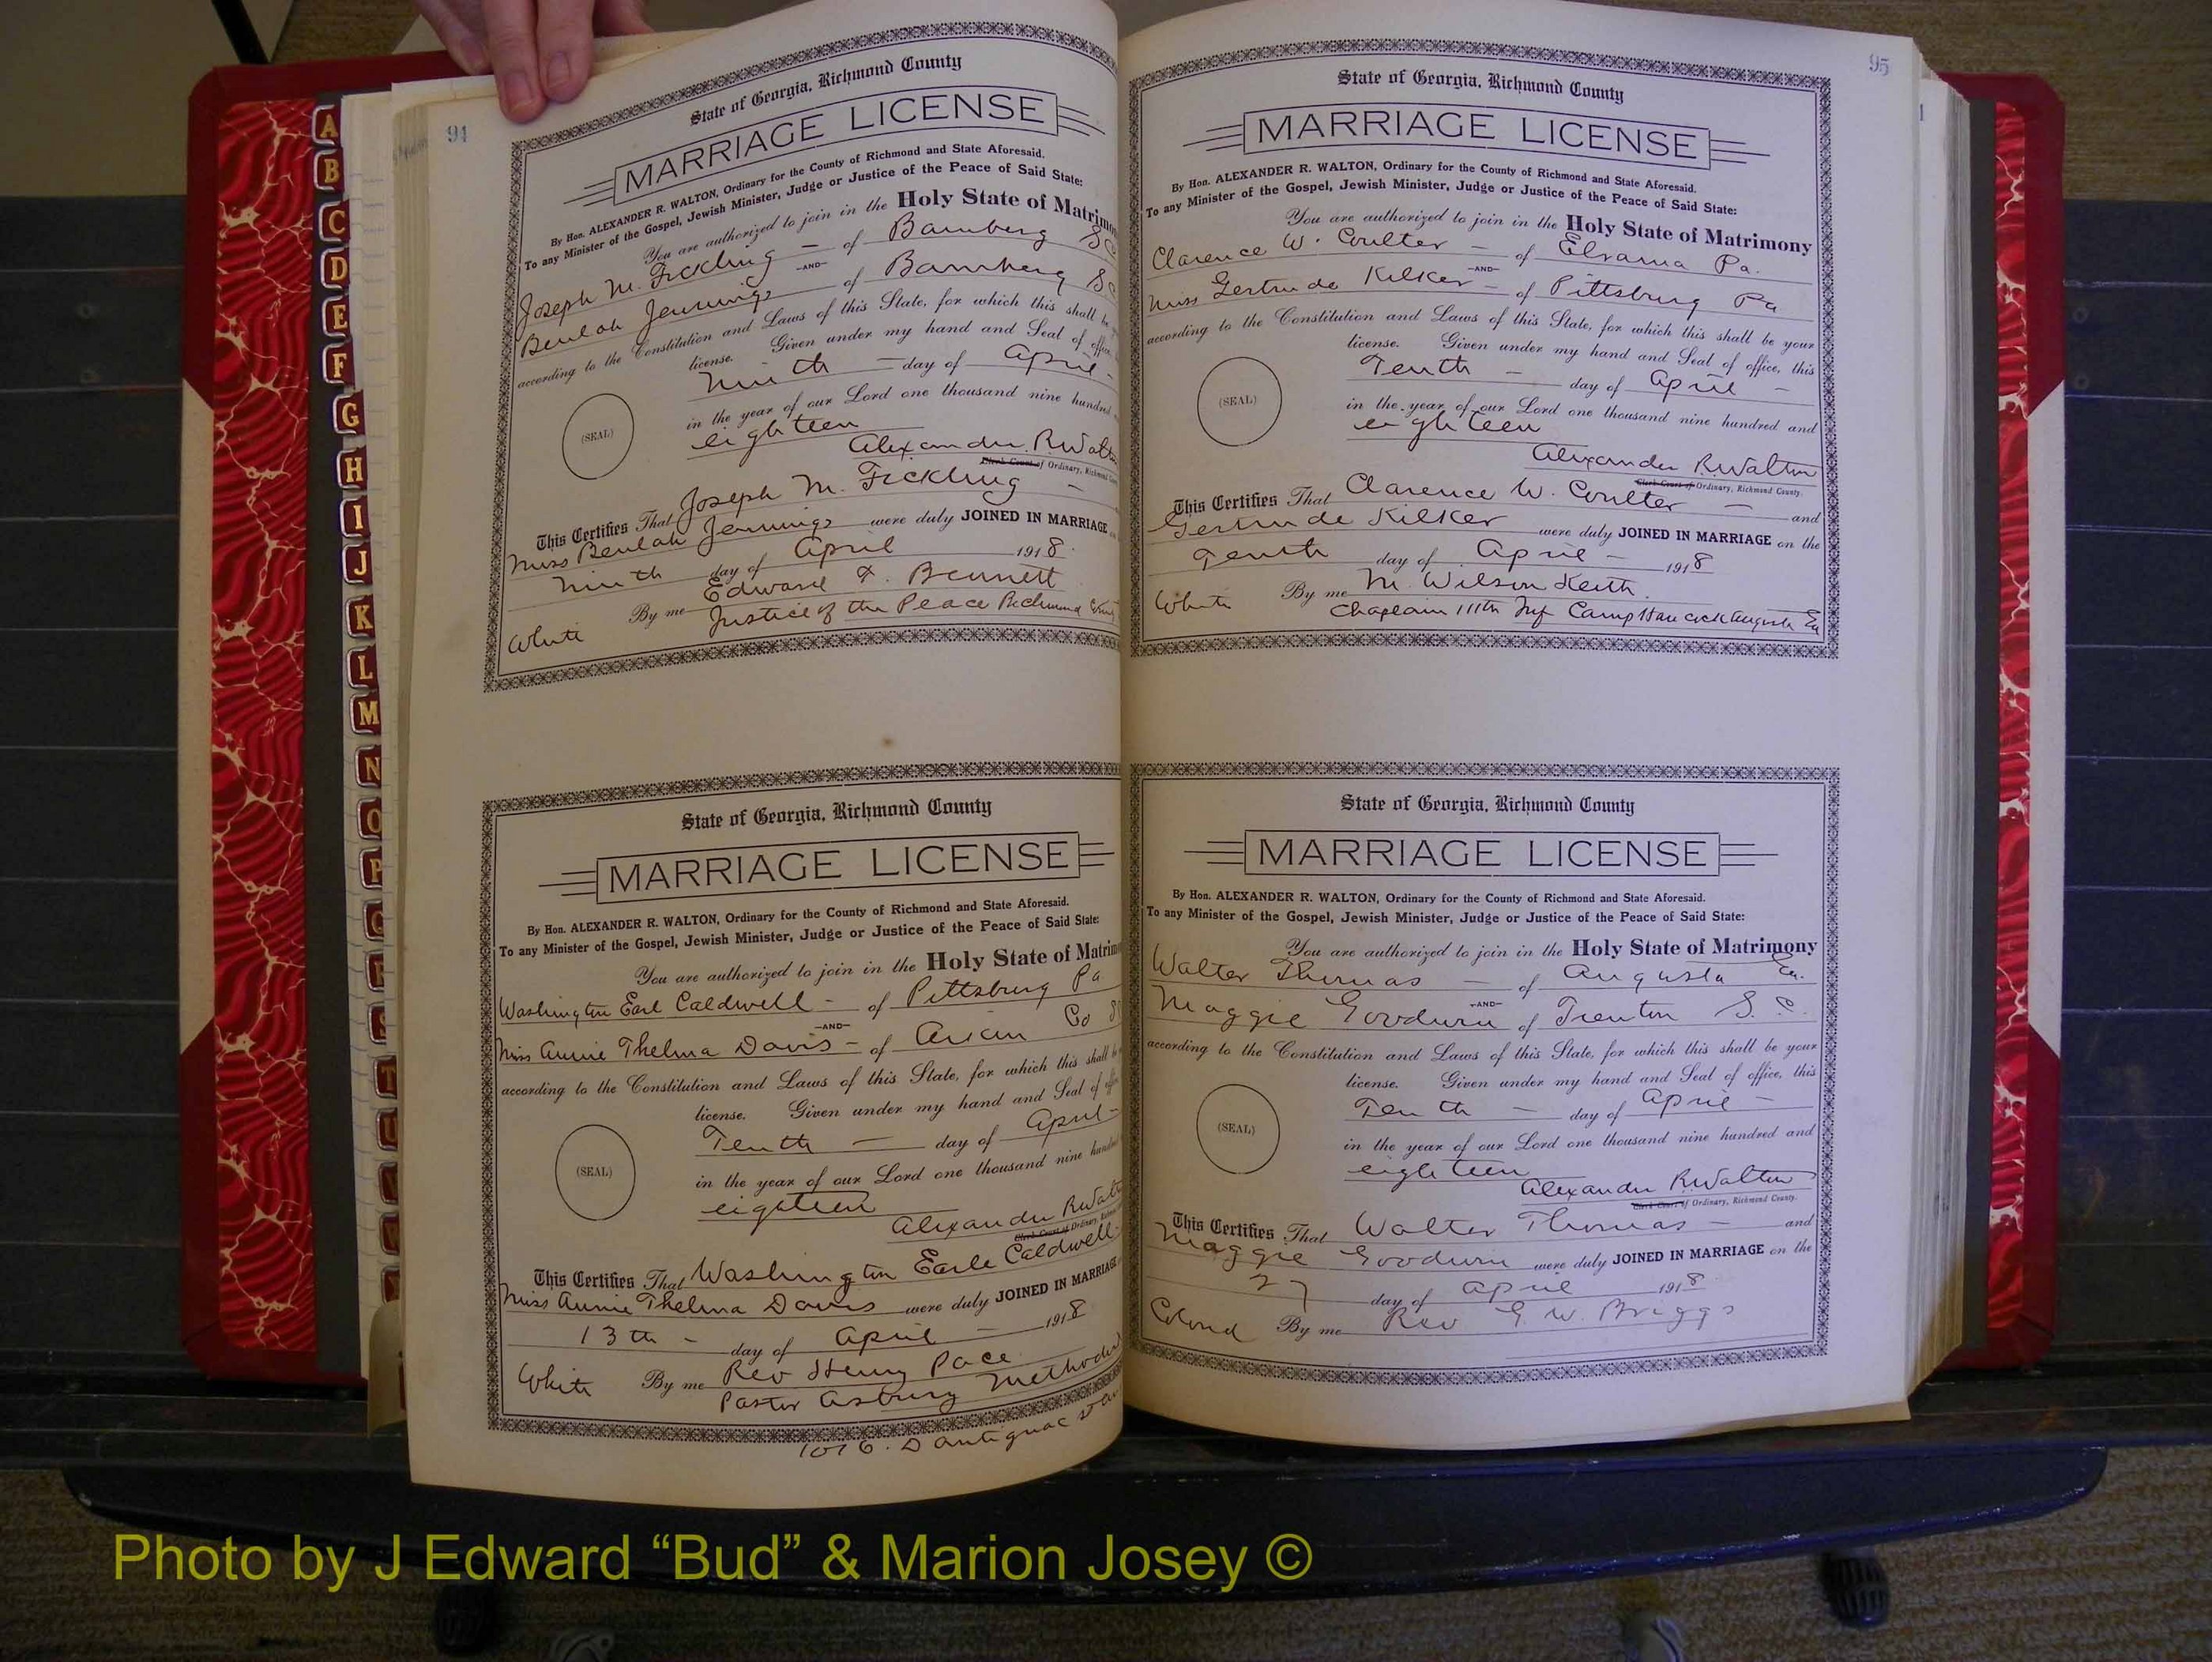 A
B
C
D
E
F
G
H
I
J
K
L
M
N
O
P
Q
R
S
T
U
94
State of Georgia, Richmond County
MARRIAGE LICENSE
By Hon. ALEXANDER R. WALTON, Ordinary for the County of Richmond and State Aforesaid.
To any Minister of the Gospel, Jewish Minister, Judge or Justice of the Peace of Said State:
You are authorized to join in the Holy State of Matrimo
Joseph M. Fickling — of Bamberg SC
—AND—
Beulah Jennings of Bamberg SC
according to the Constitution and Laws of this State, for which this shall be
license. Given under my hand and Seal of office,
Ninth — day of April -
(SEAL)
in the year of our Lord one thousand nine hundred
eighteen
Alexander R Walton
Clerk Court of Ordinary, Richmond County
This Certifies That Joseph M. Fickling —
Miss Beulah Jennings were duly JOINED IN MARRIAGE
Ninth day of April 1918
By me Edward F. Bennett
White Justice of the Peace Richmond
State of Georgia, Richmond County
MARRIAGE LICENSE
By Hon. ALEXANDER R. WALTON, Ordinary for the County of Richmond and State Aforesaid.
To any Minister of the Gospel, Jewish Minister, Judge or Justice of the Peace of Said State:
You are authorized to join in the Holy State of Matrim
Washington Earl Caldwell — of Pittsburg Pa
—AND—
Miss Annie Thelma Davis — of Aiken Co
according to the Constitution and Laws of this State, for which this shall be
license. Given under my hand and Seal of
Tenth — day of April -
(SEAL)
in the year of our Lord one thousand nine hundred
eighteen
Alexander R Walton
Clerk Court of Ordinary,
This Certifies That Washington Earle Caldwell -
Miss Annie Thelma Davis were duly JOINED IN MARRIAGE
13th - day of April — 1918
White By me Rev Henry Pace
Pastor Asbury Methodist
1016. D'antignac
95
State of Georgia, Richmond County
MARRIAGE LICENSE
By Hon. ALEXANDER R. WALTON, Ordinary for the County of Richmond and State Aforesaid.
To any Minister of the Gospel, Jewish Minister, Judge or Justice of the Peace of Said State:
You are authorized to join in the Holy State of Matrimony
Clarence W. Coulter — of Elrama Pa.
—AND—
Miss Gertrude Kilker — of Pittsburg Pa
according to the Constitution and Laws of this State, for which this shall be your
license. Given under my hand and Seal of office, this
Tenth — day of April —
(SEAL)
in the year of our Lord one thousand nine hundred and
eighteen
Alexander R Walton
Clerk Court of Ordinary, Richmond County.
This Certifies That Clarence W. Coulter — and
Gertrude Kilker were duly JOINED IN MARRIAGE on the
Tenth day of April — 1918
White By me M. Wilson Keith.
Chaplain 111th Inf Camp Hancock Augusta Ga
State of Georgia, Richmond County
MARRIAGE LICENSE
By Hon. ALEXANDER R. WALTON, Ordinary for the County of Richmond and State Aforesaid.
To any Minister of the Gospel, Jewish Minister, Judge or Justice of the Peace of Said State:
You are authorized to join in the Holy State of Matrimony
Walter Thomas — of Augusta Ga.
—AND—
Maggie Goodwin of Trenton S. C.
according to the Constitution and Laws of this State, for which this shall be your
license. Given under my hand and Seal of office, this
Tenth — day of April —
(SEAL)
in the year of our Lord one thousand nine hundred and
eighteen
Alexander R Walton
Clerk Court of Ordinary, Richmond County.
This Certifies That Walter Thomas — and
Maggie Goodwin were duly JOINED IN MARRIAGE on the
27 day of April 1918
Colored By me Rev G. W. Briggs
Photo by J Edward “Bud” & Marion Josey ©